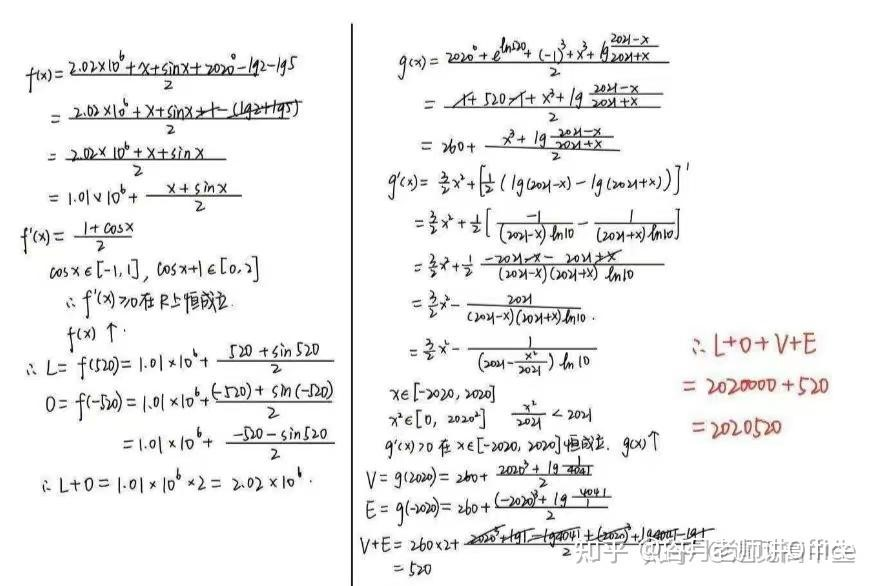 f(x) = (2.02×10⁶ + x + sinx + 2020⁰ - lg2 - lg5)/2
= (2.02×10⁶ + x + sinx + 1 - (lg2+lg5))/2
= (2.02×10⁶ + x + sinx)/2
= 1.01×10⁶ + (x + sinx)/2
f'(x) = (1+cosx)/2
cosx∈[-1,1], cosx+1∈[0,2]
∴ f'(x)≥0在R上恒成立.
f(x) ↑.
∴ L = f(520) = 1.01×10⁶ + (520 + sin520)/2
O = f(-520) = 1.01×10⁶ + ((-520) + sin(-520))/2
= 1.01×10⁶ + (-520 - sin520)/2
∴ L+O = 1.01×10⁶×2 = 2.02×10⁶.
g(x) = (2020⁰ + e^(ln520) + (-1)³ + x³ + lg (2021-x)/(2021+x))/2
= (1 + 520 - 1 + x³ + lg (2021-x)/(2021+x))/2
= 260 + (x³ + lg (2021-x)/(2021+x))/2
g'(x) = 3/2 x² + [1/2 (lg(2021-x) - lg(2021+x))]'
= 3/2 x² + 1/2 [-1/((2021-x)ln10) - 1/((2021+x)ln10)]
= 3/2 x² + 1/2 (-2021-x - 2021+x)/((2021-x)(2021+x) ln10)
= 3/2 x² - 2021/((2021-x)(2021+x)ln10).
= 3/2 x² - 1/((2021 - x²/2021) ln10)
x∈[-2020, 2020]
x²∈[0, 2020²] x²/2021 < 2021
g'(x)>0 在 x∈[-2020, 2020]恒成立. g(x)↑
V = g(2020) = 260 + (2020³ + lg 1/4041)/2
E = g(-2020) = 260 + ((-2020)³ + lg 4041/1)/2
V+E = 260×2 + (2020³ + lg1 - lg4041 + (-2020)³ + lg4041 - lg1)/2
= 520
∴ L+O+V+E
= 2020000 + 520
= 2020520
知乎